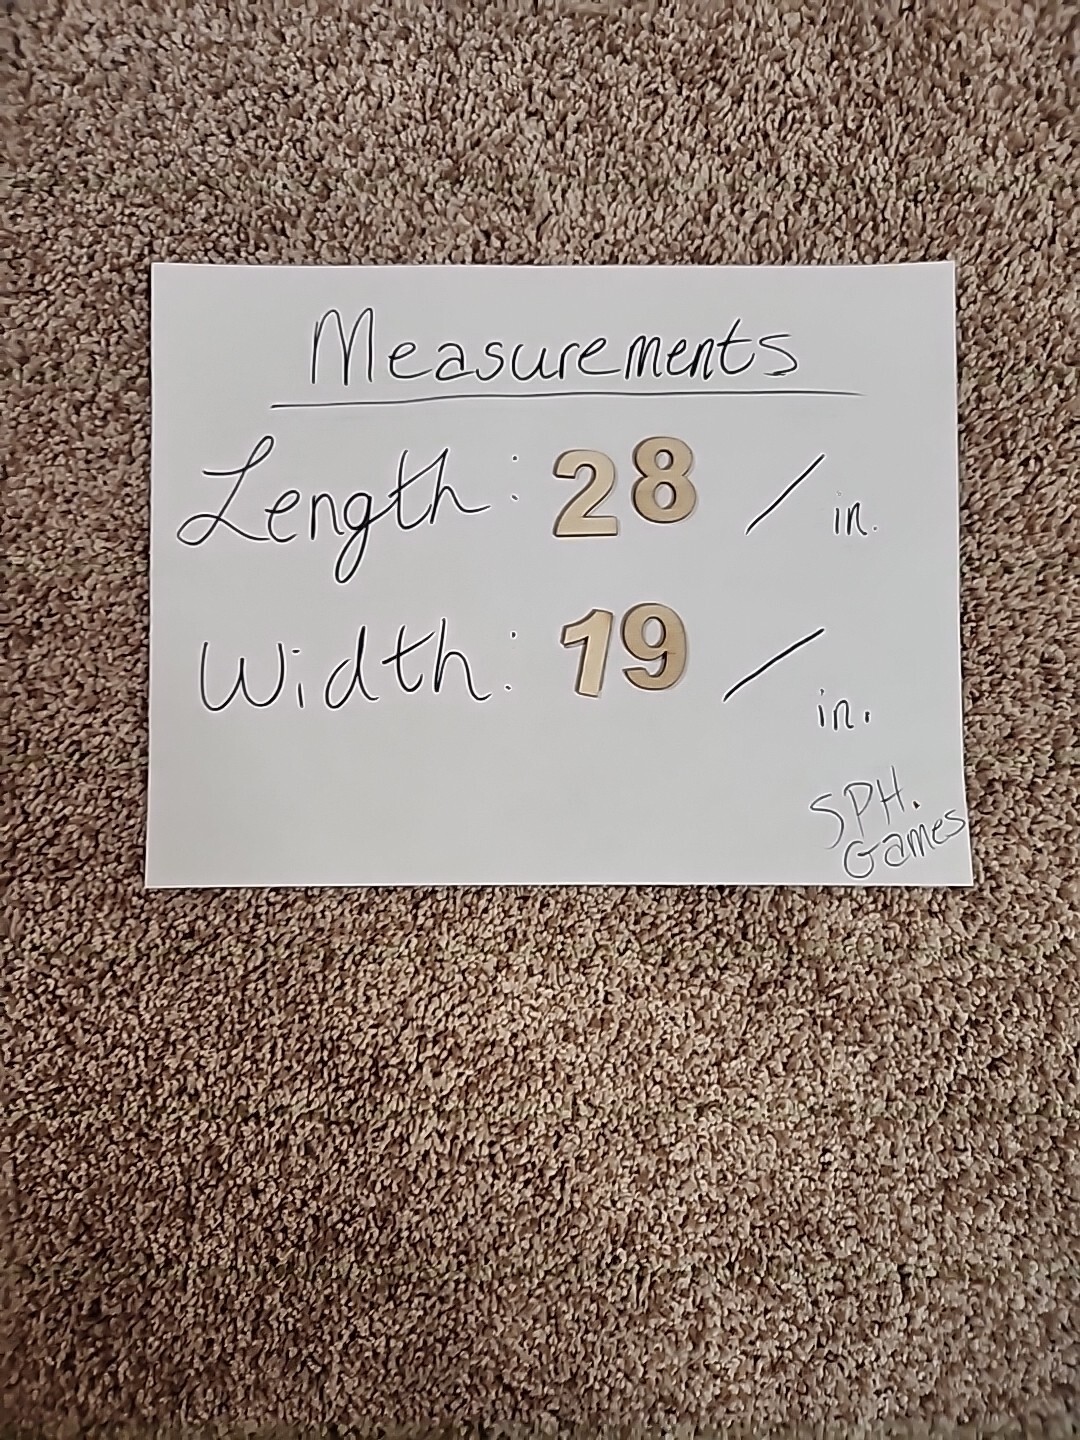 Measurements
Length: 28 / in.
Width: 19 / in.
SPH.
Games